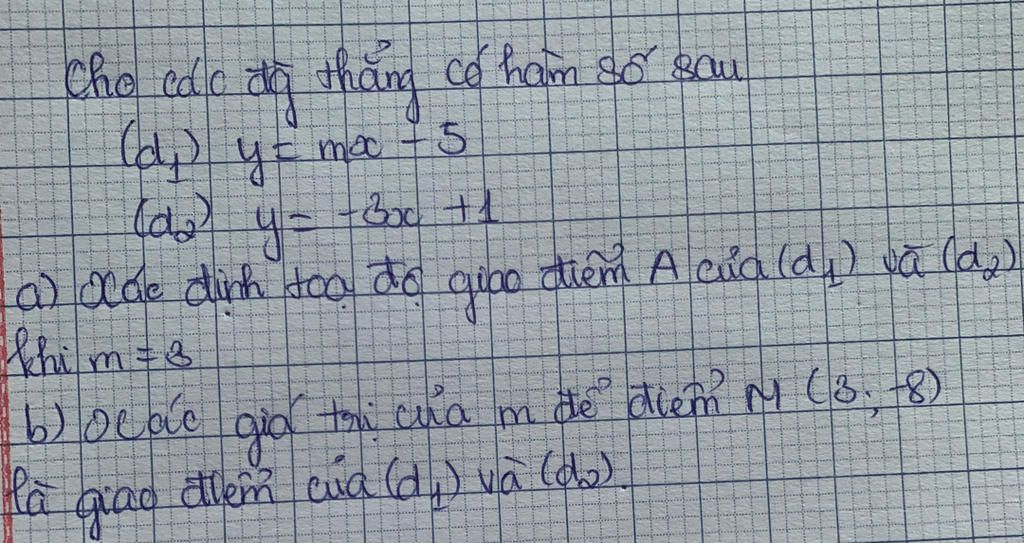 Cho các đg thẳng có hàm số sau
(d₁) y = mx - 5
(d₂) y = -3x + 1
a) Xác định toạ độ giao điểm A của (d₁) và (d₂)
khi m = 3
b) Xác giá trị của m để điểm M (3; -8)
là giao điểm của (d₁) và (d₂).